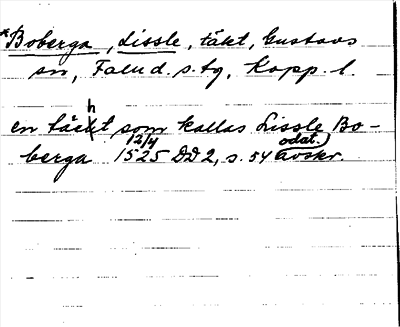 *Boberga, Lissle, täkt, Gustavs
sn, Falu d. s:tg, Kopp. l.
en täckt som kallas Lissle Bo-
berga 12/4 1525 DD 2, s. 54 (odat. avskr.)